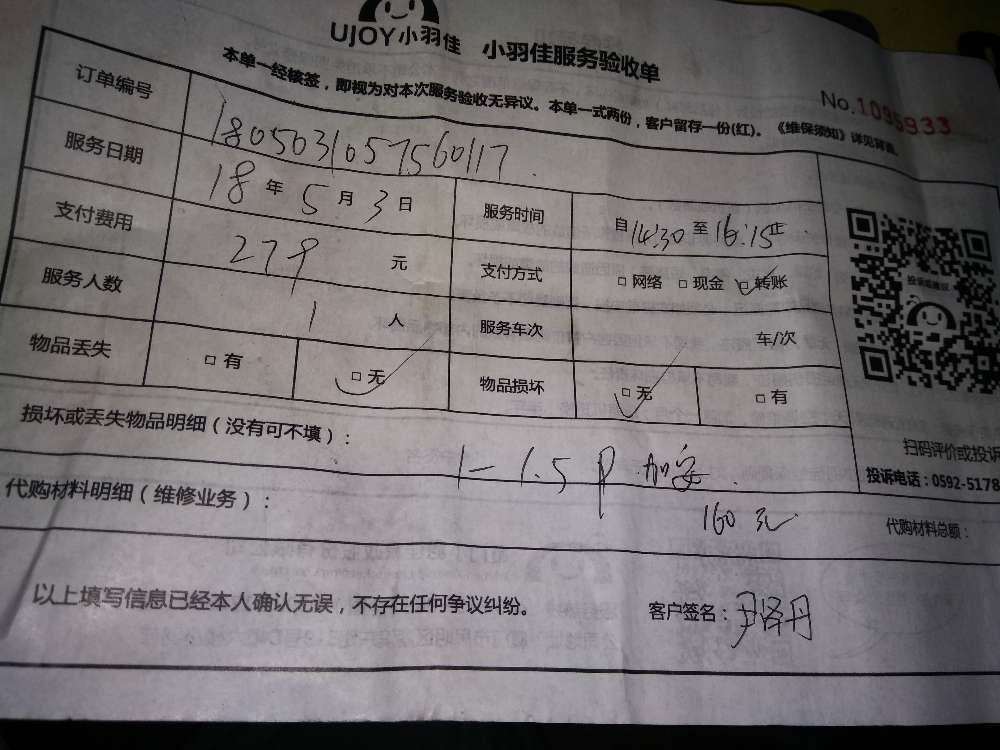 UJOY小羽佳 小羽佳服务验收单
No.1095933
本单一经核签，即视为对本次服务验收无异议。本单一式两份，客户留存一份(红)。《维保须知》详见背面
订单编号 1805031057560117
服务日期 18年5月3日 服务时间 自14:30至16:15止
支付费用 279元 支付方式 □网络 □现金 □转账
服务人数 1人 服务车次 车/次
物品丢失 □有 □无 物品损坏 □无 □有
投诉或建议
扫码评价或投诉
投诉电话：0592-5178
损坏或丢失物品明细（没有可不填）：
1-1.5P 加安
160元
代购材料明细（维修业务）： 代购材料总额：
以上填写信息已经本人确认无误，不存在任何争议纠纷。 客户签名：尹泽丹